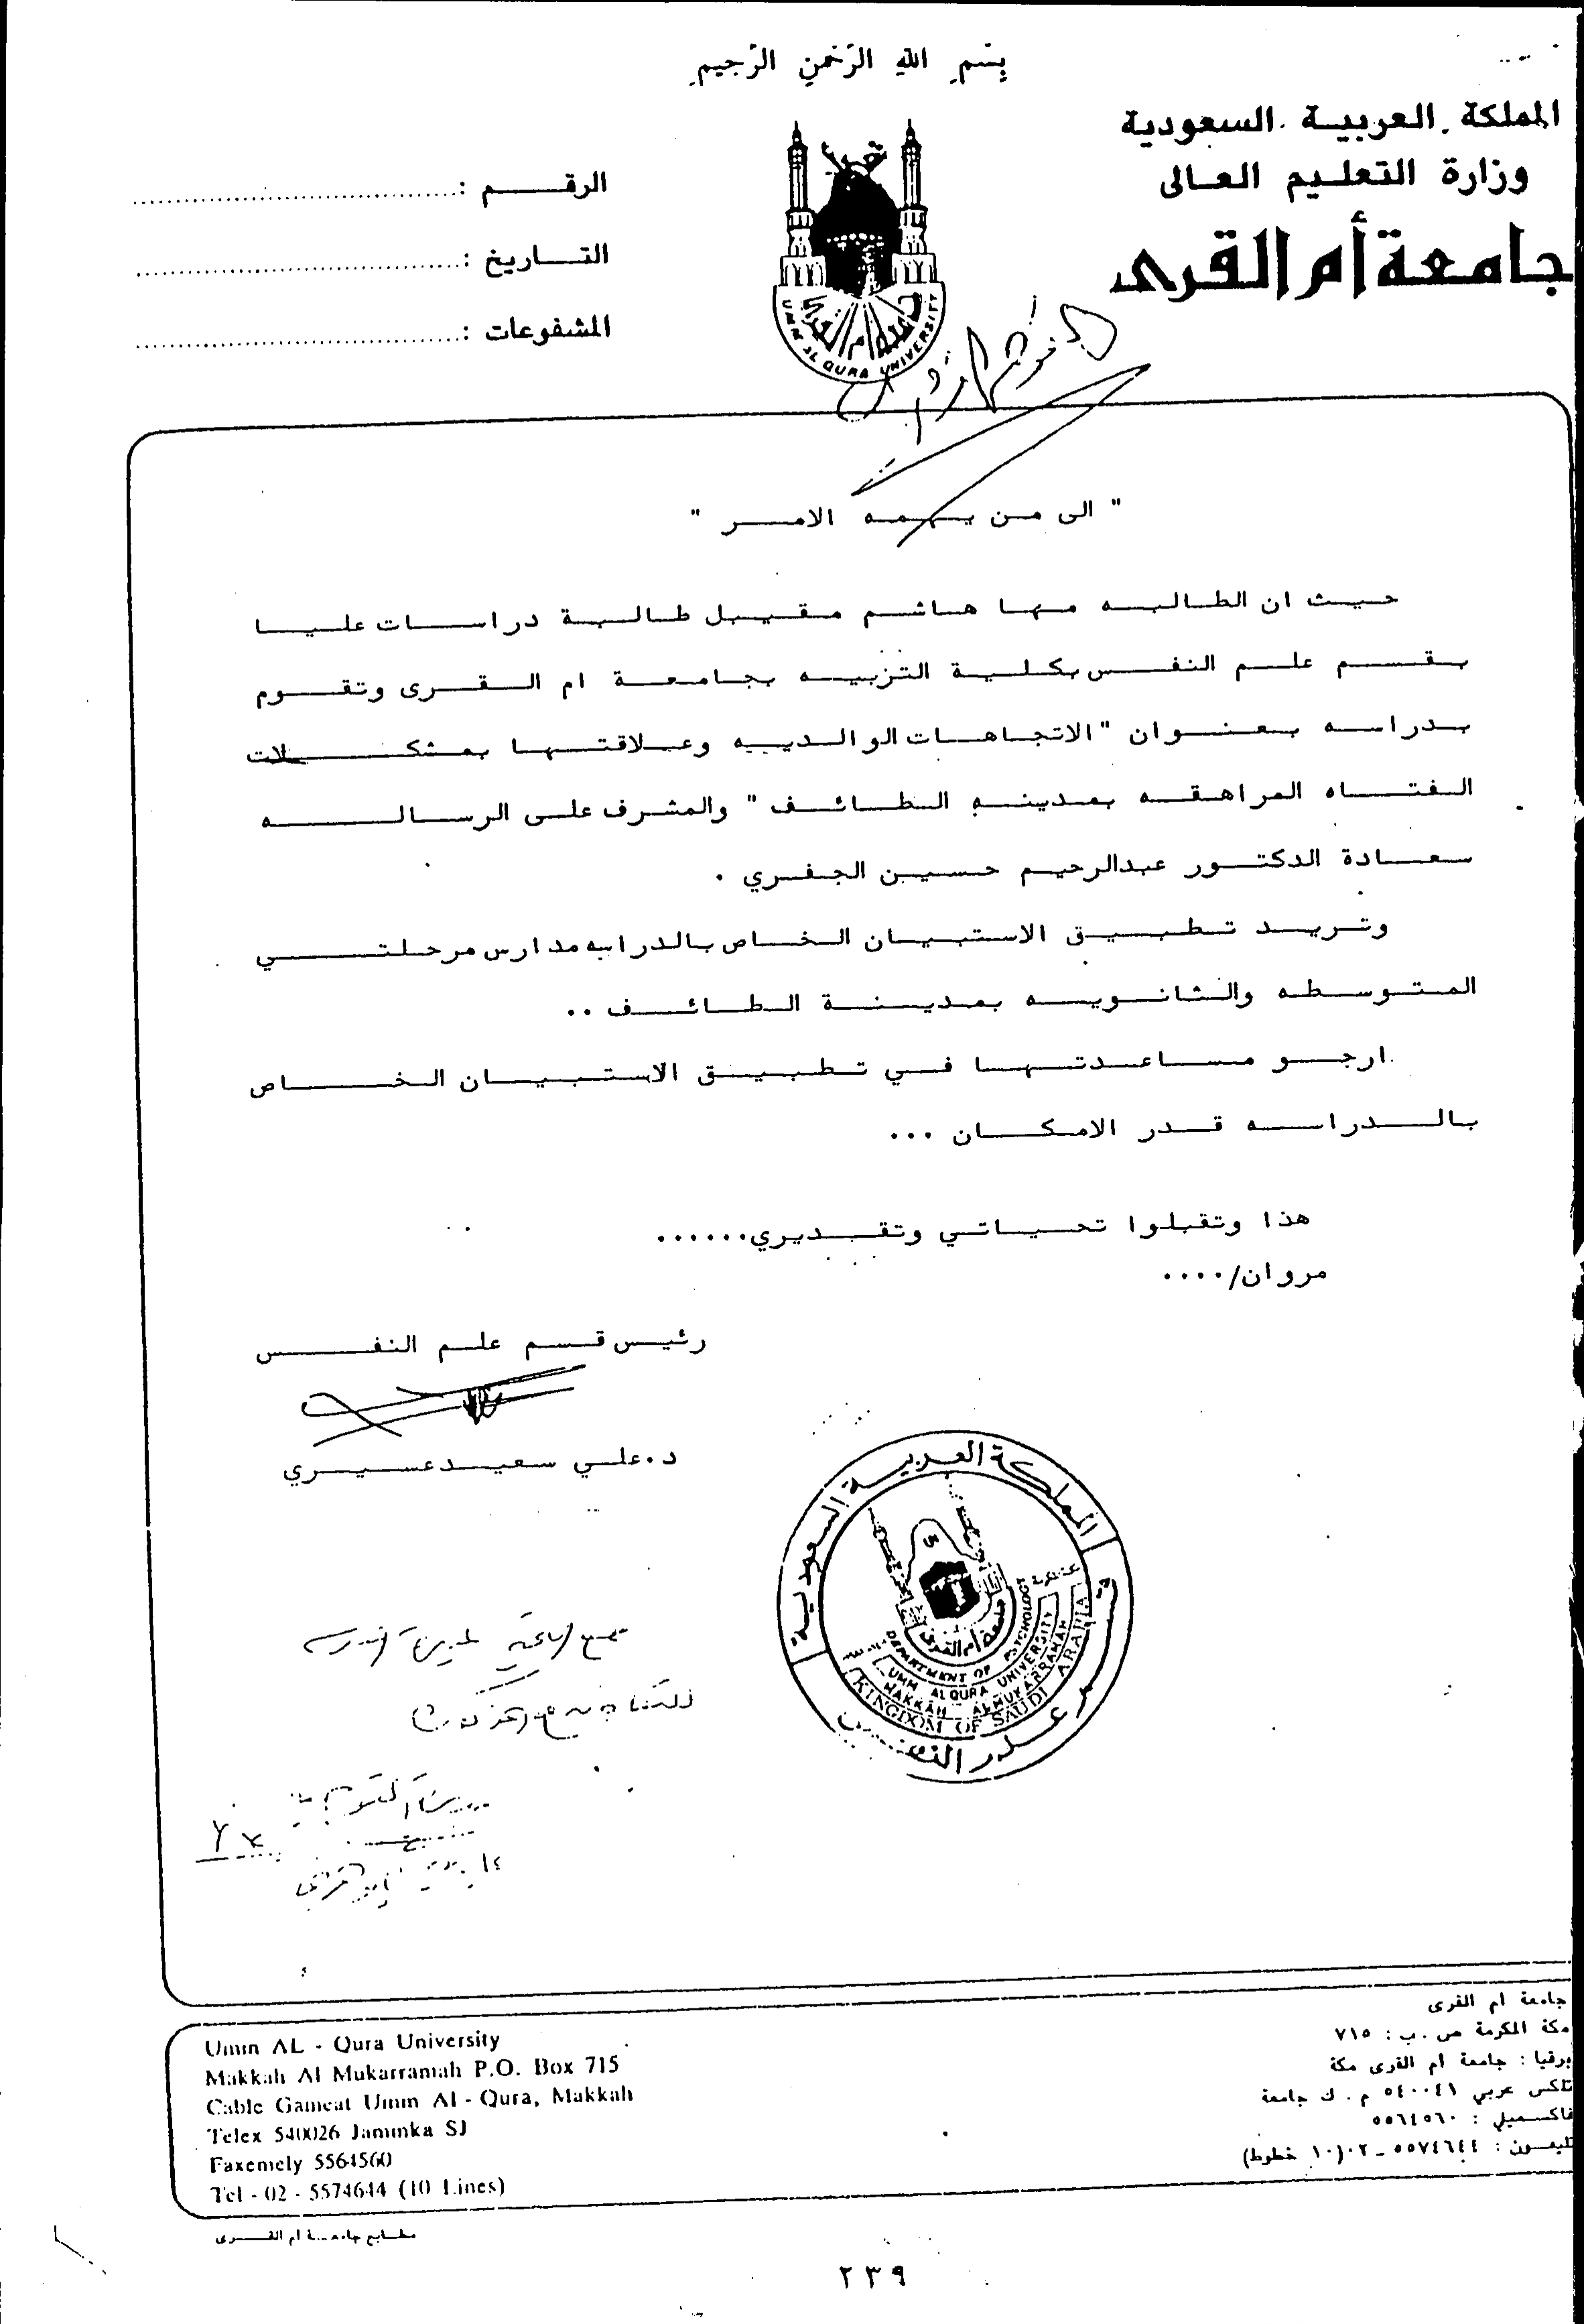 بِسْمِ اللهِ الرَّحْمنِ الرَّحِيمِ
المملكة العربية السعودية
وزارة التعليم العالى
جامعة أم القرى
الرقم :
التاريخ :
المشفوعات :
UMM AL QURA UNIVERSITY
" الى من يهمه الامر "
حيث ان الطالبه مها هاشم مقيبل طالبة دراسات عليا
بقسم علم النفس بكلية التربيه بجامعة ام القرى وتقوم
بدراسه بعنوان "الاتجاهات الوالديه وعلاقتها بمشكلات
الفتاه المراهقه بمدينه الطائف " والمشرف على الرساله
سعادة الدكتور عبدالرحيم حسين الجفري .
وتريد تطبيق الاستبيان الخاص بالدراسه مدارس مرحلتي
المتوسطه والثانويه بمدينة الطائف ..
ارجو مساعدتها في تطبيق الاستبيان الخاص
بالدراسه قدر الامكان ...
هذا وتقبلوا تحياتي وتقديري......
مروان/....
رئيس قسم علم النفس
د.علي سعيد عسيري
المملكة العربية السعودية
جامعة أم القرى
DEPARTMENT OF PSYCHOLOGY
UMM ALQURA UNIVERSITY
MAKKAH ALMUKARRAMAH
KINGDOM OF SAUDI ARABIA
قسم علم النفس
جامعة أم القرى
مكة المكرمة ص . ب : ٧١٥
برقيا : جامعة أم القرى مكة
تلكس عربي ٥٤٠٠٤١ م . ك جامعة
فاكسميلي : ٥٥٦٤٥٦٠
تليفون : ٥٥٧٤٦٤٤ - ٠٢ (١٠ خطوط)
Umm AL - Qura University
Makkah Al Mukarramah P.O. Box 715
Cable Gameat Umm Al - Qura, Makkah
Telex 540026 Jammka SJ
Faxemely 5564560
Tel - 02 - 5574644 (10 Lines)
مطابع جامعة أم القرى
٢٣٩